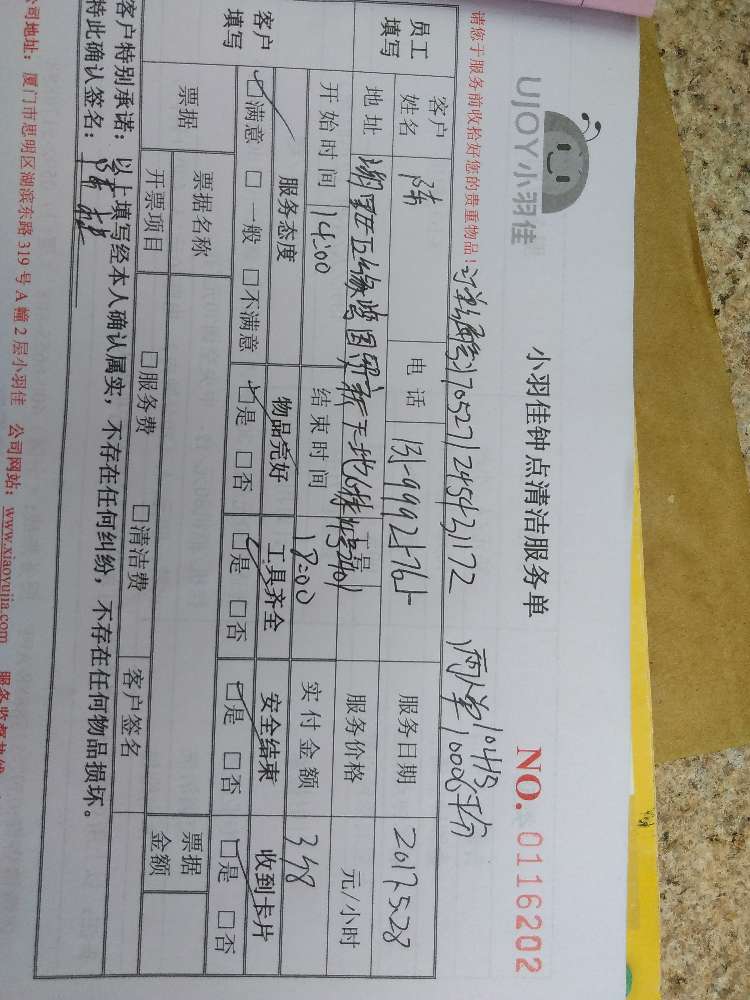 UJOY小羽佳
小羽佳钟点清洁服务单
NO. 0116202
请您于服务前收拾好您的贵重物品!
170527124543172 两人单
员工填写
客户姓名 陈 电话 服务日期 2017.5.28
地址 服务价格 元/小时
开始时间 14:00 结束时间 18:00 实付金额 348
客户填写
服务态度 物品完好 工具齐全 安全结束 收到卡片
☑满意 □一般 □不满意 ☑是 □否 ☑是 □否 ☑是 □否 ☑是 □否
票据 票据名称 票据金额
开票项目 □服务费 □清洁费 客户签名
客户特别承诺:以上填写经本人确认属实,不存在任何纠纷,不存在任何物品损坏。
特此确认签名: 陈
公司地址:厦门市思明区湖滨东路 319 号 A 幢 2 层小羽佳 公司网站:www.xiaoyujia.com